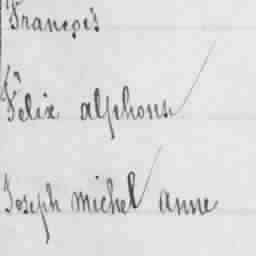 François
Félix alphons
Joseph michel anne